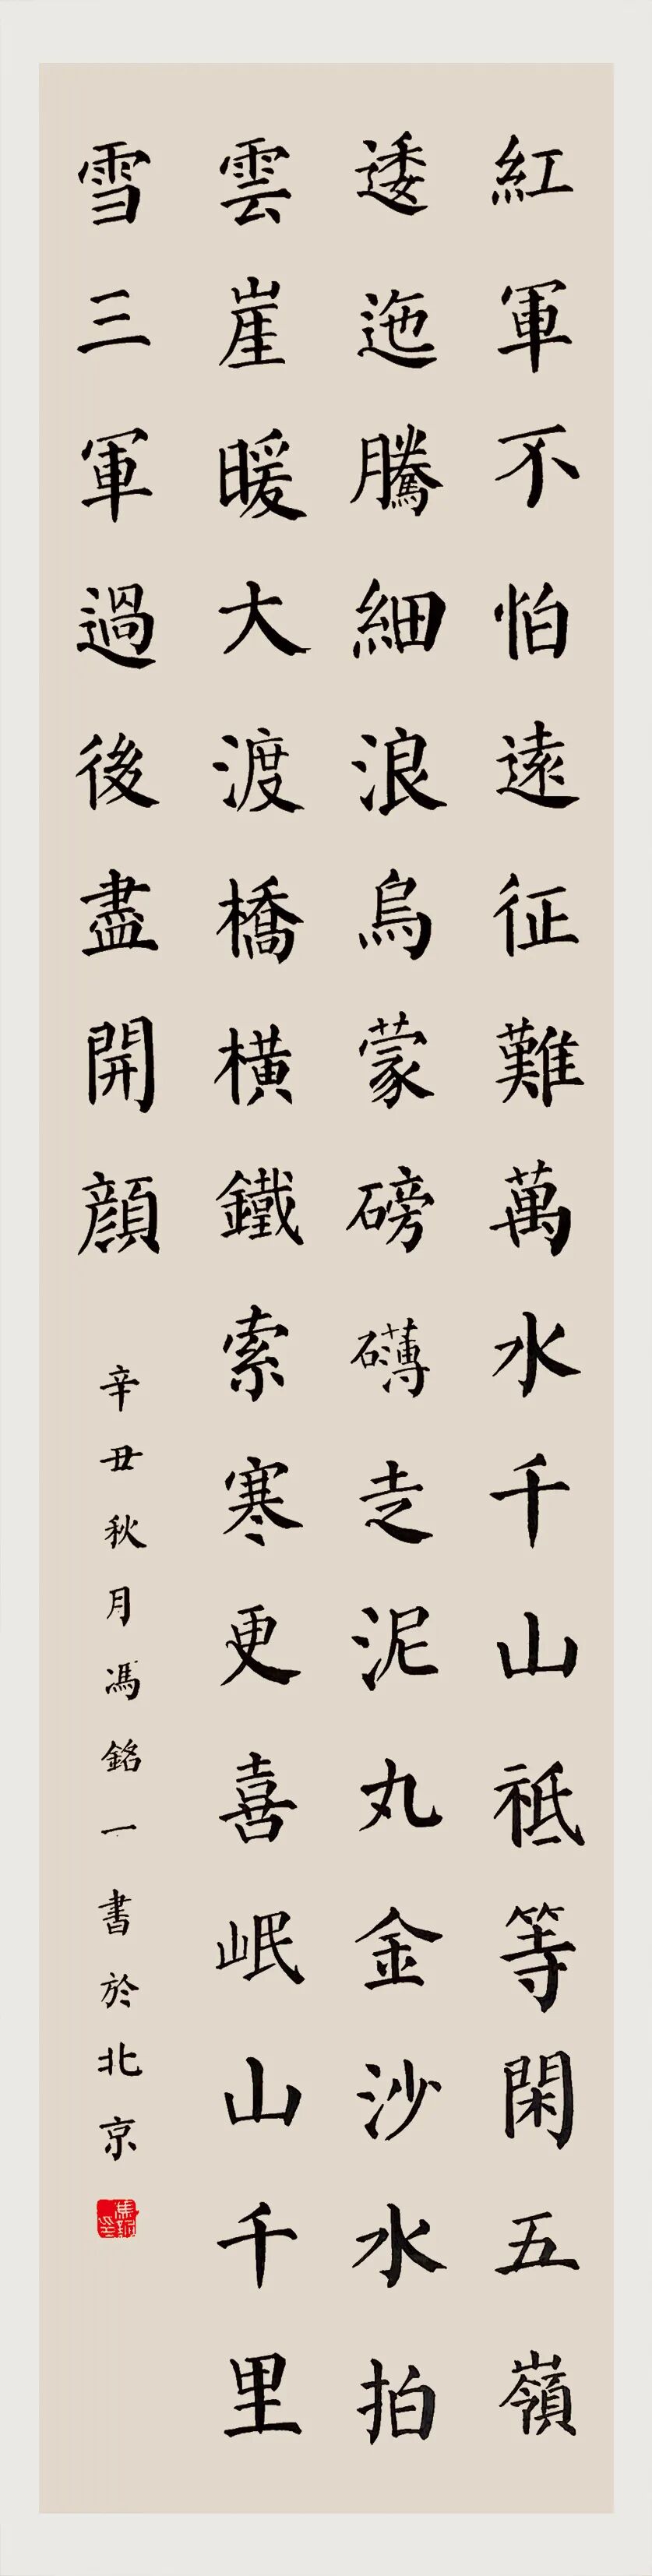 紅軍不怕遠征難萬水千山祗等閑五嶺
逶迤騰細浪烏蒙磅礴走泥丸金沙水拍
雲崖暖大渡橋橫鐵索寒更喜岷山千里
雪三軍過後盡開顔
辛丑秋月馮銘一書於北京